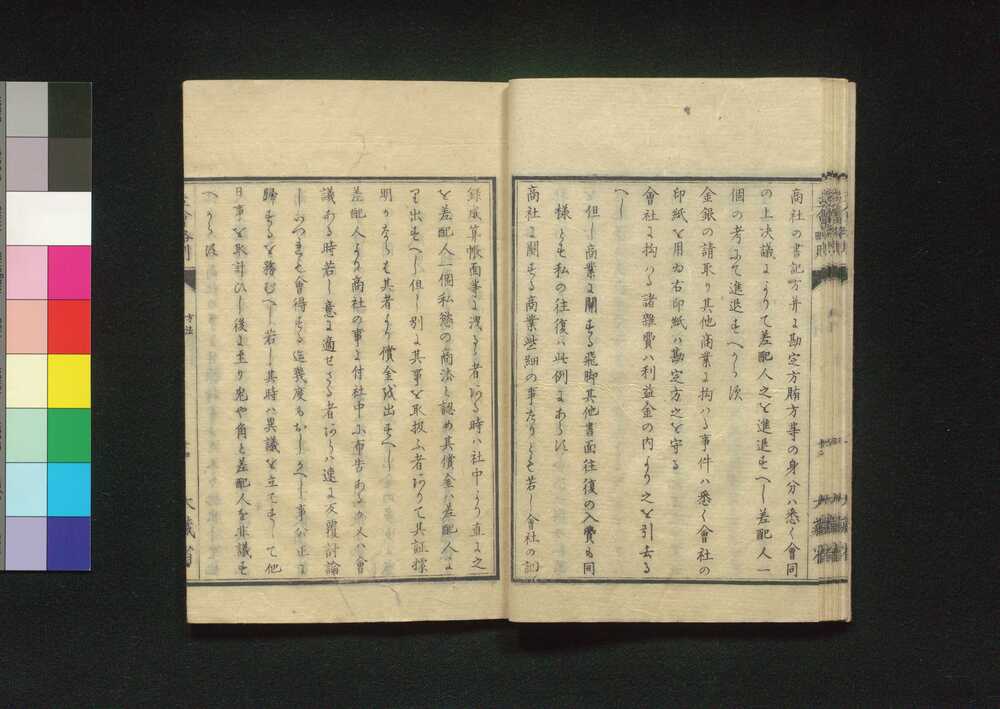 商社の書記方并に勘定方賄方等の身分ハ悉く會同
の上决議によりて差配人之を進退すへし差配人一
個の考にて進退すへからす
金銀の請取り其他商業に拘ハる事件ハ悉く會社の
印紙を用ゐ右印紙ハ勘定方之を守る
會社に拘ハる諸雜費ハ利益金の内より之を引去る
へし
但し商業に關する飛脚其他書面往復の入費も同
樣とも私の往復ハ此例にあらす
商社に關する商業些細の事たりとも若し會社の訓
錄或算帳面等に洩るゝ者ある時ハ社中より直に之
を差配人一個私慾の商法と認め其償金ハ差配人よ
り出すへし但し別に其事を取扱ふ者ありて其証據
明かならハ其者より償金を出すへし
差配人より商社の事に付社中に布告あるか又ハ會
議ある時若し意に適せさる者あらハ速に反覆討論
しいつれも會得する迄幾度もなしへし事公正に
歸するを務むへし若し其時ハ異議を立てすして他
日事を取計ひし後に至り兎や角と差配人を非議す
へからす
方法
大藏省